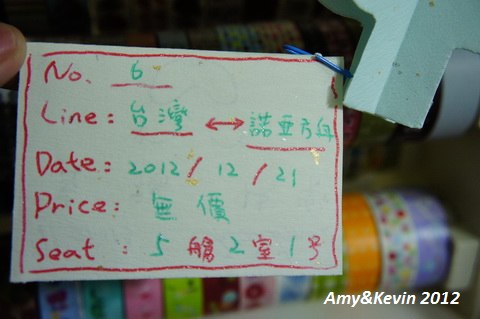 No. 6
Line: 台灣 ↔ 諾亞方舟
Date: 2012/12/21
Price: 無價
Seat: 5 艙 2 室 1 号
Amy&Kevin 2012